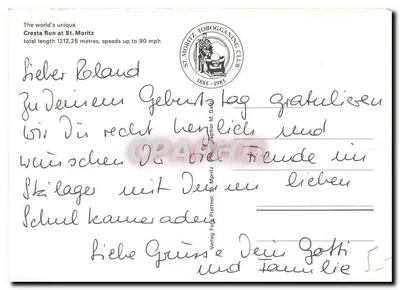 The world's unique
Cresta Run at St. Moritz
total length 1212,25 metres, speeds up to 90 mph
ST. MORITZ TOBOGGANING CLUB
1885-1985
Lieber Roland
Zu Deinem Geburtstag gratulieren
wir Dir recht herzlich und
wünschen Dir viel Freude im
Skilager mit Deinen lieben
Schulkameraden
Liebe Grüsse Dein Götti
und Familie
5.-
Verlag Foto Plattner, St. Moritz